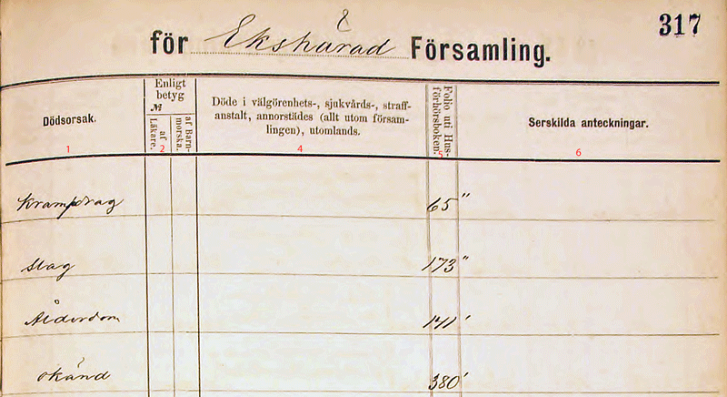 317
för Ekshärad Församling.
Dödsorsak.
Enligt
betyg
№
af
Läkare.
af Barn-
morska.
Döde i välgörenhets-, sjukvårds-, straff-
anstalt, annorstädes (allt utom församlingen), utomlands.
Folio uti Hus-
förhörsboken.
Serskilda anteckningar.
1 2 4 5 6
Krampdrag 65"
Slag 173"
Ålderdom
okänd 380'